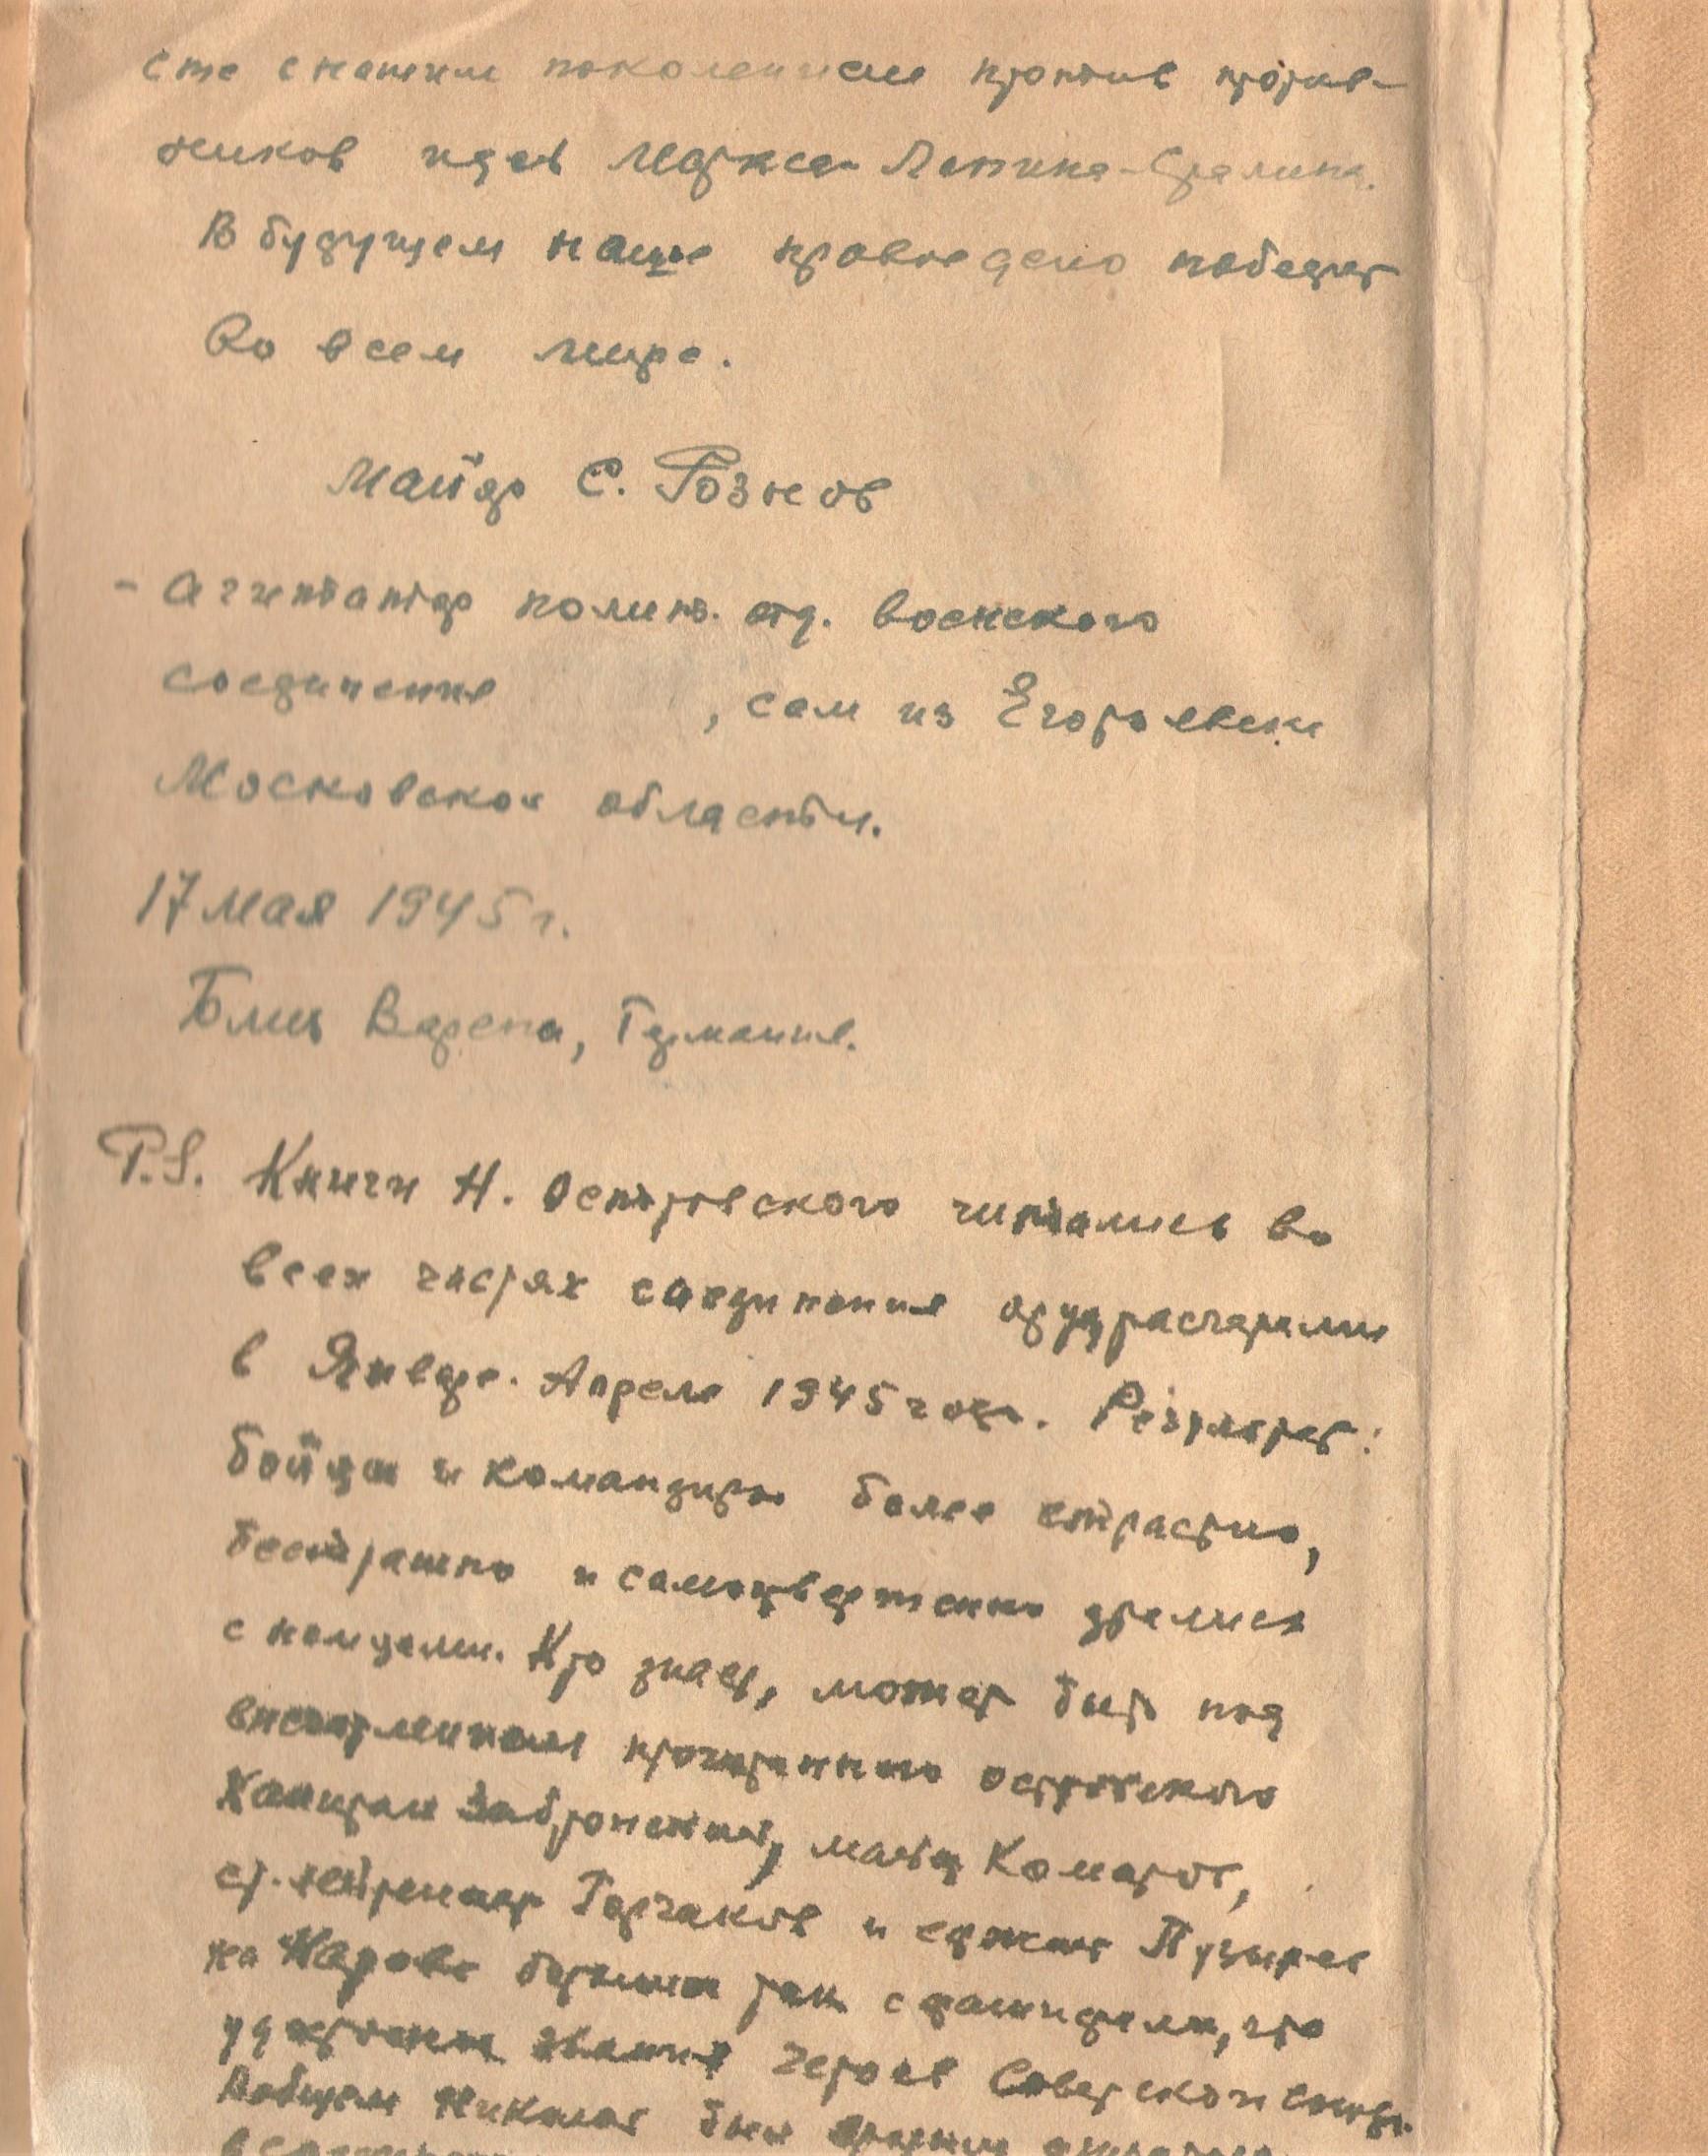 сте с нашим поколением против против-
ников идей Маркса-Ленина-Сталина.
В будущем наше правое дело победит
во всем мире.
Майор С. Гознов
- агитатор полит. отд. воинского
соединения , сам из Егорьевска
Московской области.
17 мая 1945 г.
Близ Варена, Германия.
P.S. Книги Н. Островского читались во
всех частях соединения
в Январе-Апреле 1945 года. Результат:
бойцы и командиры более страстно,
бесстрашно и самоотверженно дрались
с немцами. Кто знает, может быть под
впечатлением прочитанного Островского
капитан Заборонский, майор Комаров,
ст. лейтенант Горчаков и сержант Пузырев
на Нарове так с фашистами, что
удостоены звания героев Советского Союза.
Николай был